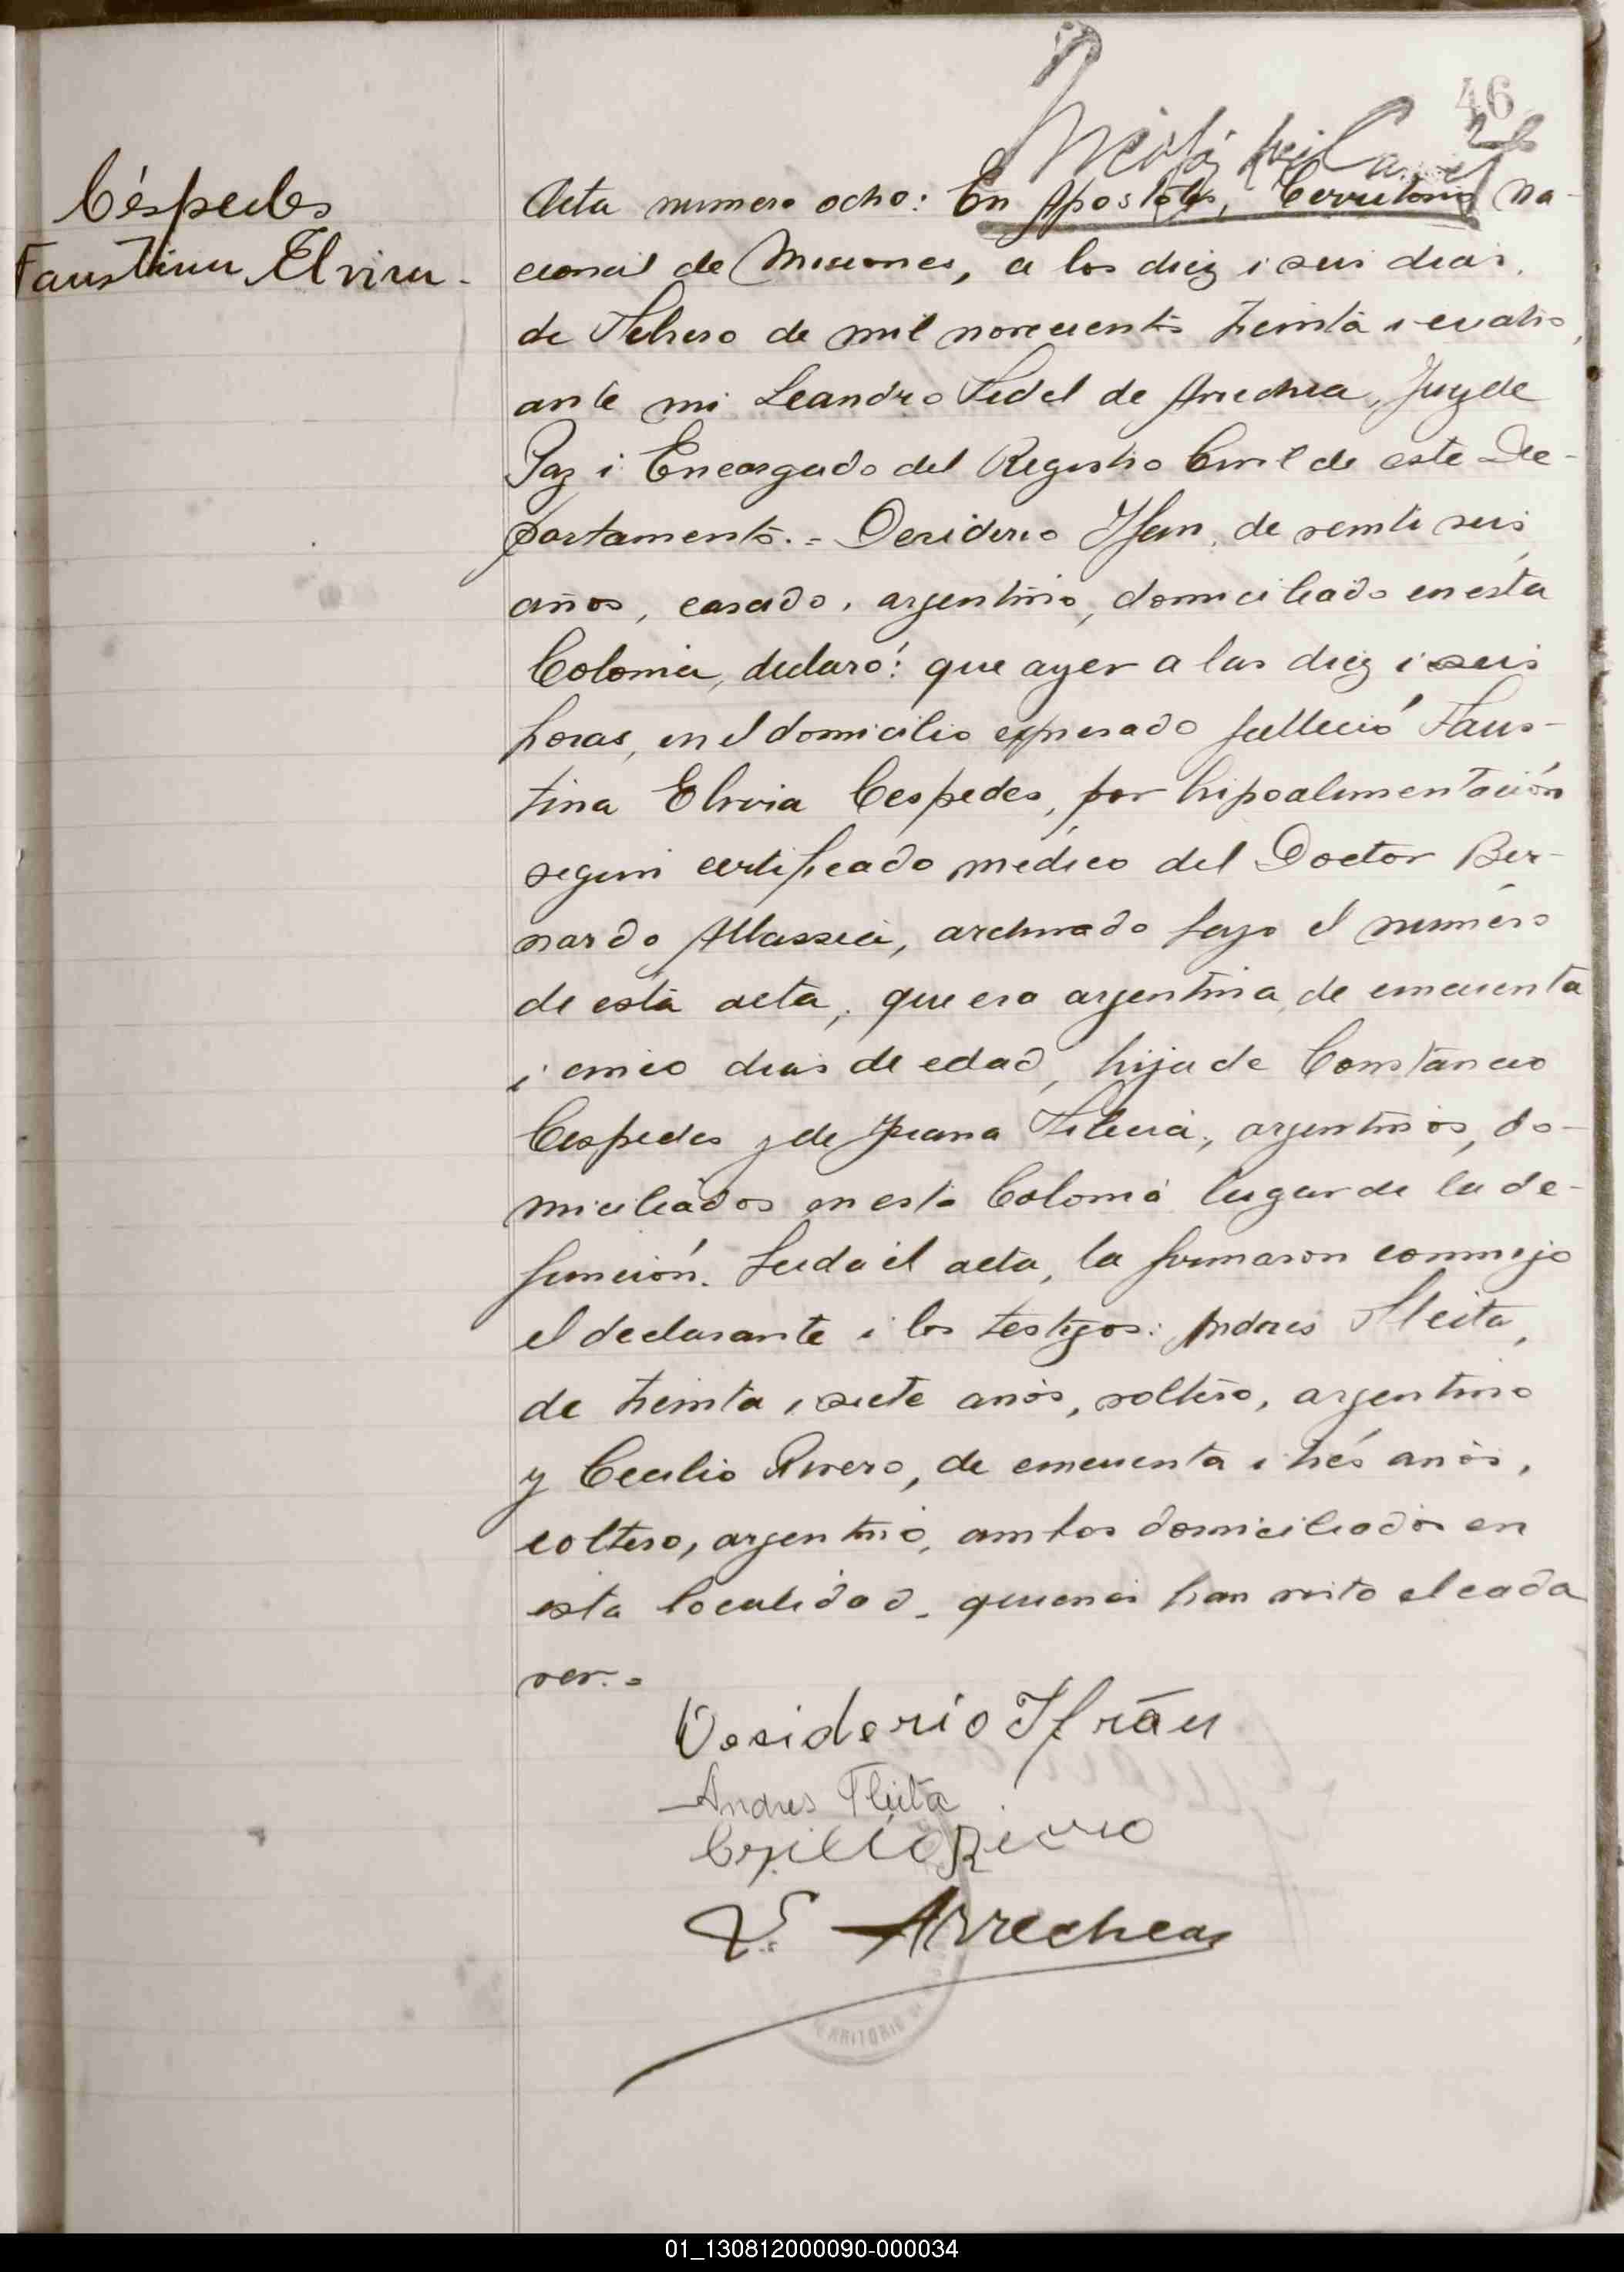 46
Céspedes
Faustina Elvira.
Acta numero ocho: En Apostoles, Territorio Na-
cional de Misiones, a los diez i seis dias,
de Febrero de mil novecientos treinta i cuatro,
ante mi Leandro Fidel de Arrechea, Juez de
Paz i Encargado del Registro Civil de este De-
partamento.= Desiderio Ifran, de veinti seis
años, casado, argentino, domiciliado en esta
Colonia, declaró: que ayer a las diez i seis
horas, en el domicilio expresado falleció Faus-
tina Elvira Cespedes, por hipoalimentación
segun certificado médico del Doctor Ber-
nardo, archivado bajo el número
de esta acta, que era argentina, de cincuenta
i cinco dias de edad, hija de Constancio
Cespedes y de Juana, argentinos, do-
miciliados en esta Colonia lugar de la de-
función. Leida el acta, la firmaron conmigo
el declarante i los testigos: Andres Fleita,
de treinta i siete años, soltero, argentino
y Cecilio Rivero, de cincuenta i trés años,
soltero, argentino, ambos domiciliados en
esta localidad, quienes han visto el cada
ver.=
Desiderio Ifrán
Andres Fleita
Cecilio Rivero
L. Arrechea
TERRITORIO
01_130812000090-000034